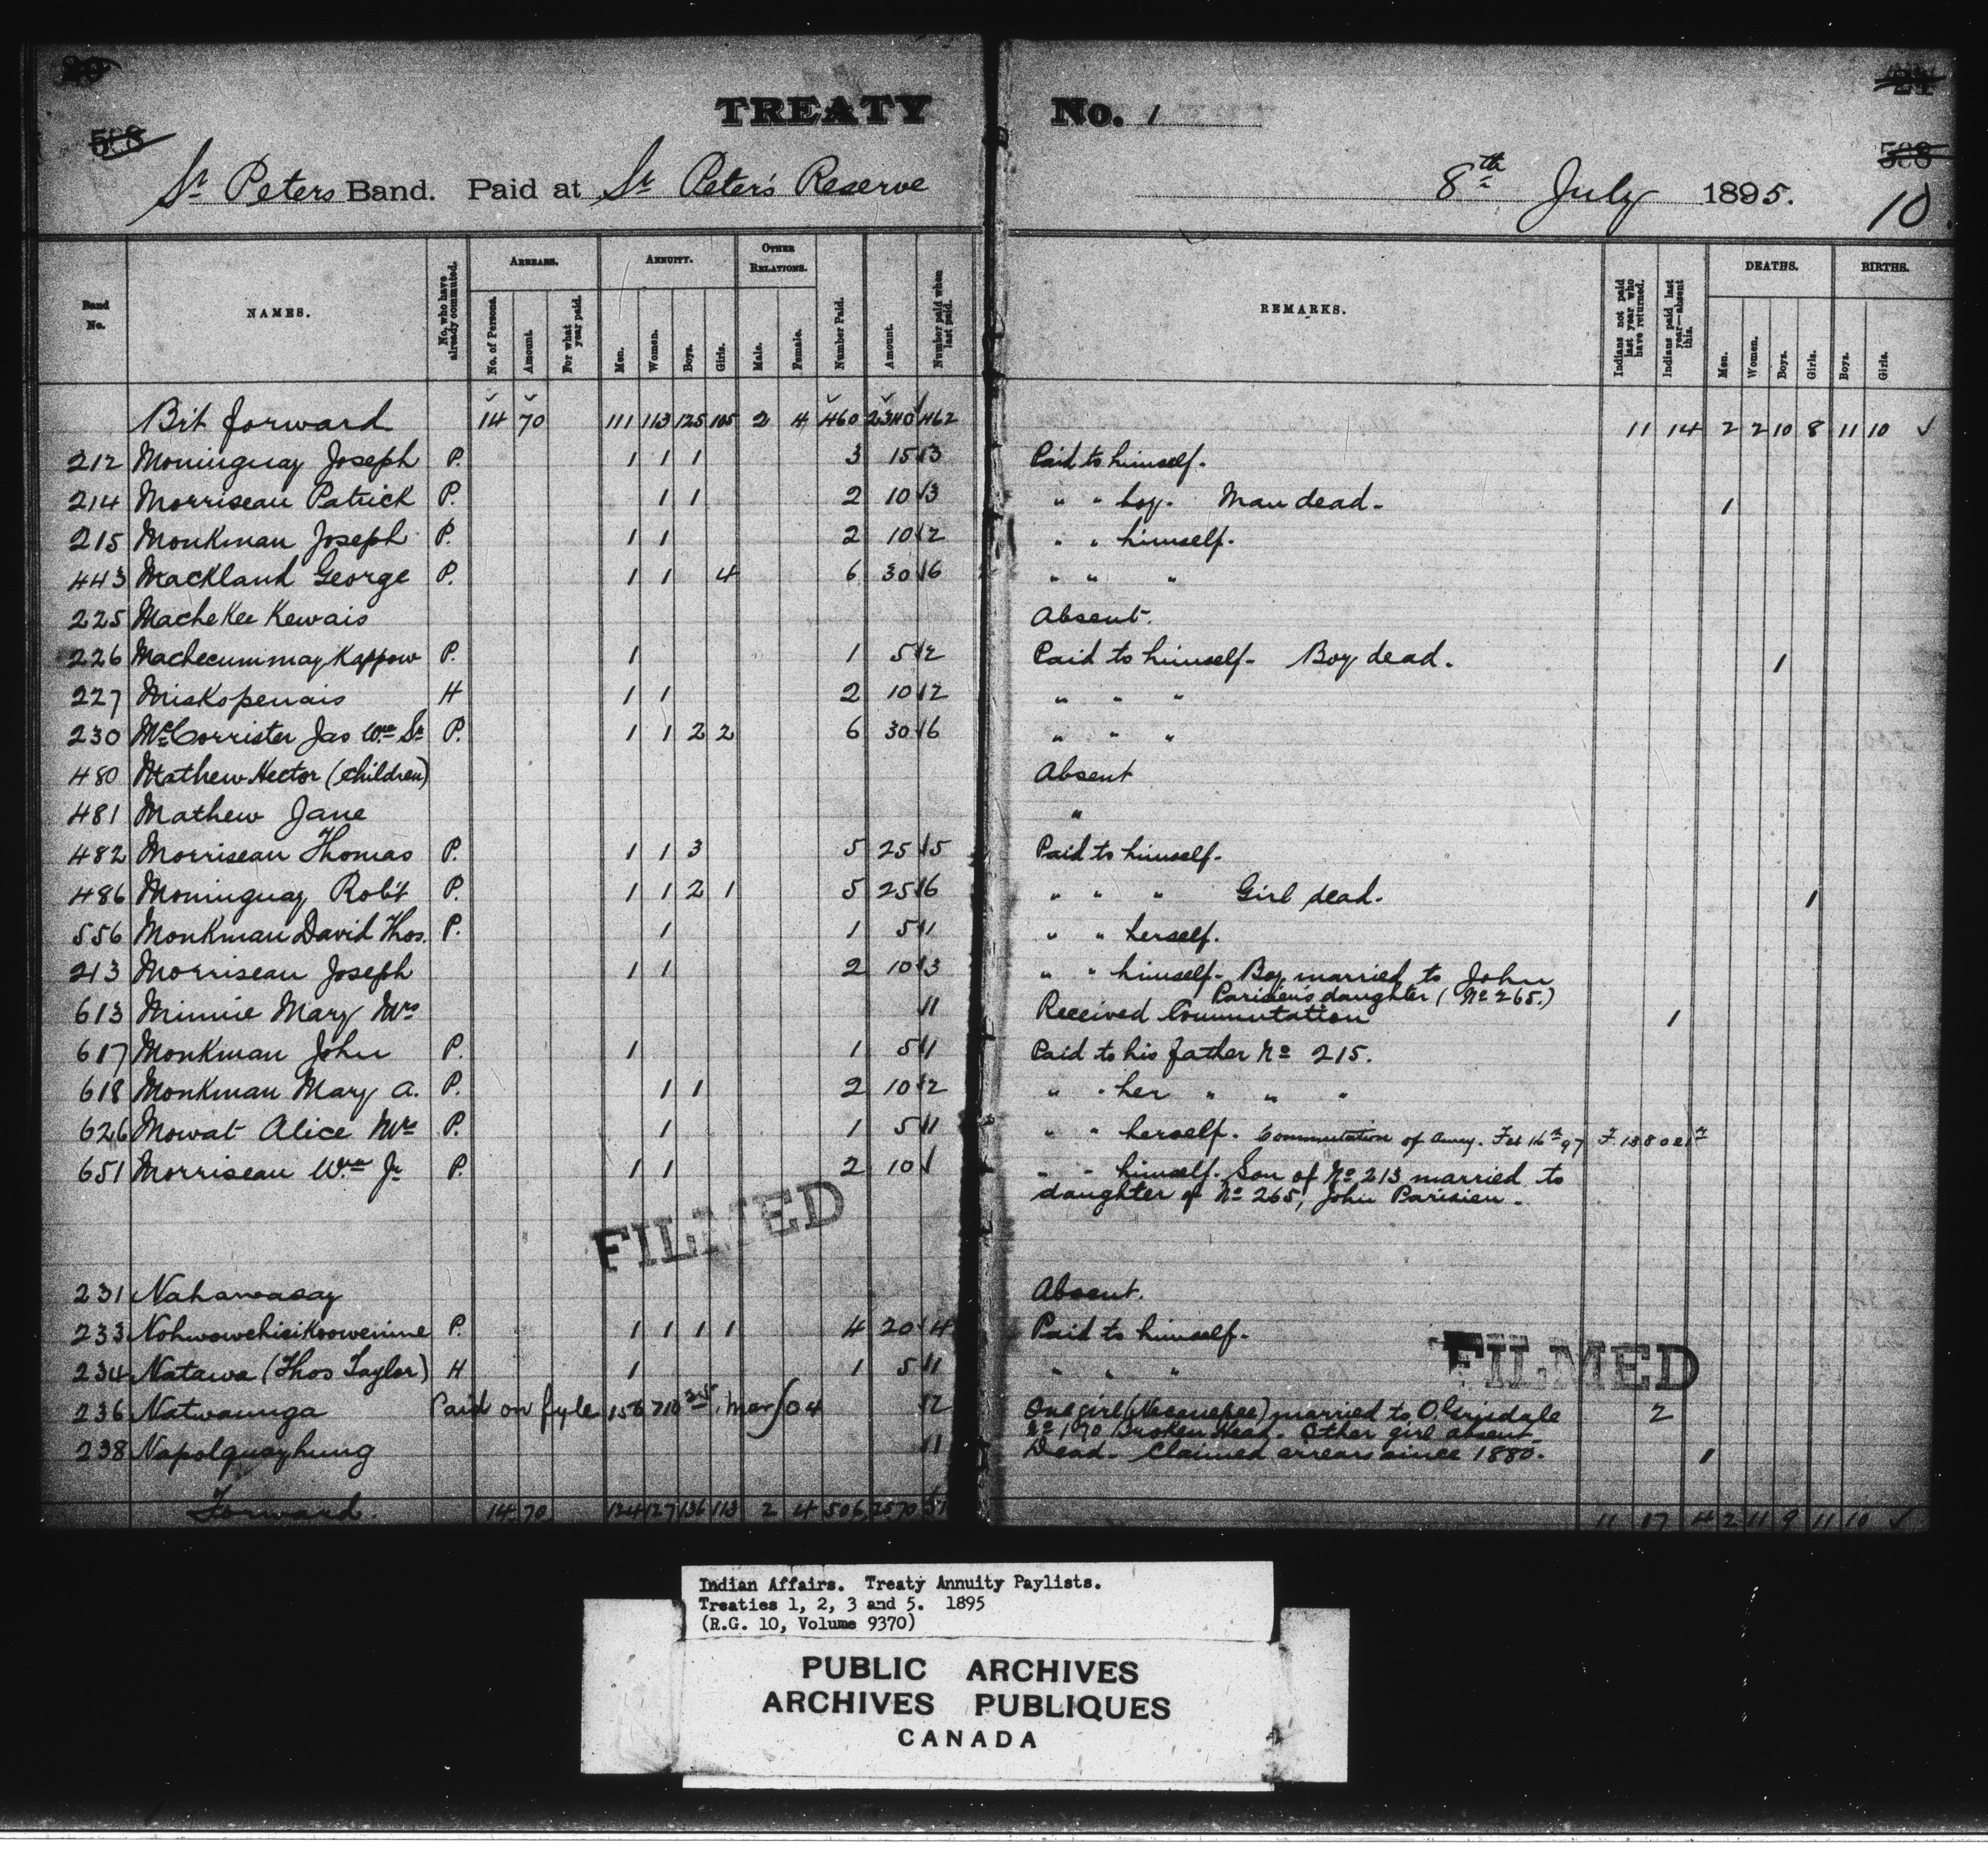 TREATY No. 1
St Peters Band. Paid at St Peter's Reserve 8th July 1895.
10
Band No. NAMES. No. who have already commuted. ARREARS. No. of Persons. Amount. For what year paid. ANNUITY. Men. Women. Boys. Girls. OTHER RELATIONS. Male. Female. Number Paid. Amount. Number paid when last paid. REMARKS. Indians not paid last year who have returned. Indians paid last year—absent this. DEATHS. Men. Women. Boys. Girls. BIRTHS. Boys. Girls.
Brt forward 14 70 111 113 125 105 2 4 460 2340 462 11 14 2 2 10 8 11 10 ✓
212 Moninguay Joseph P. 1 1 1 3 15 3 Paid to himself.
214 Morriseau Patrick P. 1 1 2 10 3 " " boy. Man dead. 1
215 Monkman Joseph P. 1 1 2 10 2 " " himself.
443 Mackland George P. 1 1 4 6 30 6 " " "
225 MacheKee Kewais Absent.
226 Machecummay Kappow P. 1 1 5 2 Paid to himself. Boy dead. 1
227 Miskopenais H 1 1 2 10 2 " " "
230 McCorrister Jas Wm Sr P. 1 1 2 2 6 30 6 " " "
480 Mathew Hector (children) Absent
481 Mathew Jane "
482 Morriseau Thomas P. 1 1 3 5 25 5 Paid to himself.
486 Moninguay Robt P. 1 1 2 1 5 25 6 " " " Girl dead. 1
556 Monkman David Thos. P. 1 1 5 1 " " herself.
213 Morriseau Joseph 1 1 2 10 3 " " himself. Boy married to John
Parisien's daughter (No 265.)
613 Minnie Mary Mrs 1 Received Commutation 1
617 Monkman John P. 1 1 5 1 Paid to his father No 215.
618 Monkman Mary A. P. 1 1 2 10 2 " " her " " "
626 Mowat Alice Mrs P. 1 1 5 1 " " herself. Commutation of Anny. Feb 16th 97
651 Morriseau Wm Jr P. 1 1 2 10 " " himself. Son of No 213 married to
daughter of No 265, John Parisien.
FILMED
231 Nahawasay Absent.
233 Nohwowchisikoowenine P. 1 1 1 1 4 20 4 Paid to himself.
234 Natawa (Thos Taylor) H 1 1 5 1 " " "
FILMED
236 Natwaunga Paid on fyle 2 One girl married to O. Grisdale 2
No 190 Broken Head. Other girl absent
238 Napolquayhung 1 Dead. Claimed arrears since 1880. 1
Forward. 14 70 124 127 136 113 2 4 506 2570 11 17 4 2 11 9 11 10 ✓
Indian Affairs. Treaty Annuity Paylists.
Treaties 1, 2, 3 and 5. 1895
(R.G. 10, Volume 9370)
PUBLIC ARCHIVES
ARCHIVES PUBLIQUES
CANADA